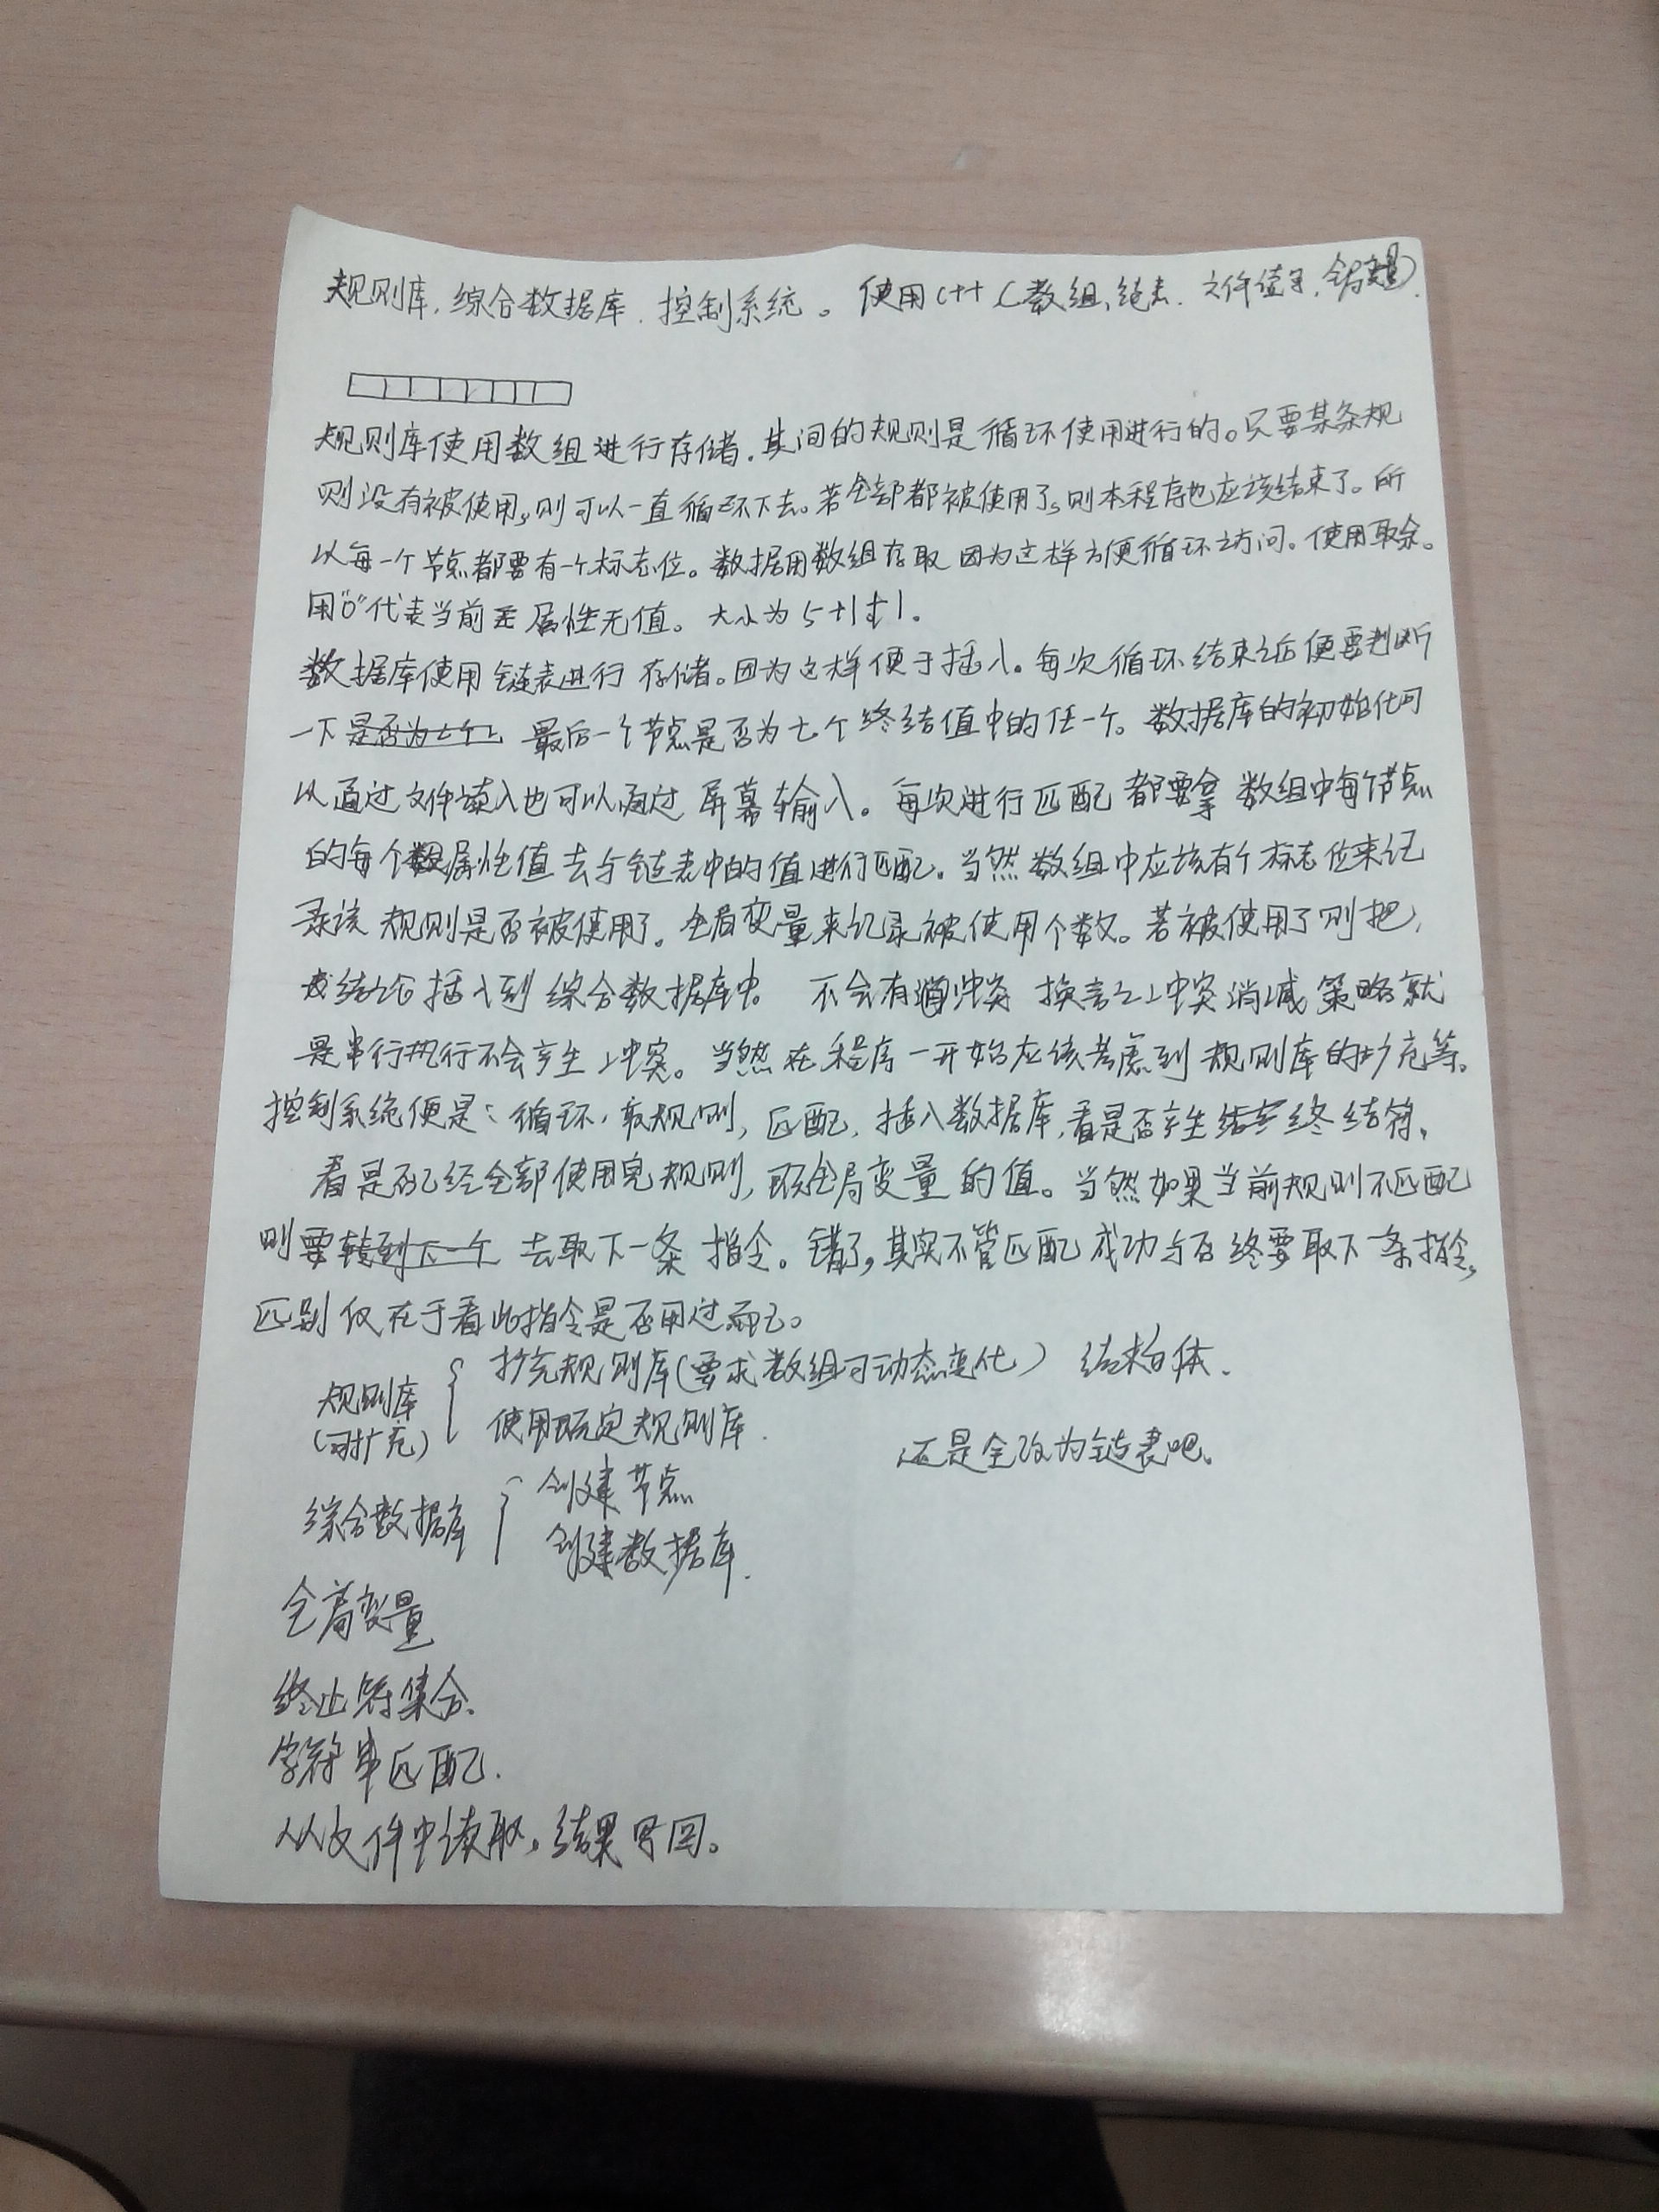 规则库,综合数据库.控制系统。 使用C++(数组,链表.文件读写,全局变量).
规则库使用数组进行存储,其间的规则是循环使用进行的。只要某条规
则没有被使用,则可以一直循环下去。若全部都被使用了,则本程序也应该结束了。所
以每一个节点都要有一个标志位。数据用数组存取因为这样方便循环访问。使用取余。
用"0"代表当前 属性无值。大小为5+1+1.
数据库使用链表进行存储。因为这样便于插入。每次循环结束之后便要判断
一下 最后一个节点是否为七个终结值中的任一个。数据库的初始化可
以通过文件读入也可以通过屏幕输入。每次进行匹配都要拿数组中每个节点
的每个属性值去与链表中的值进行匹配。当然数组中应该有个标志位来记
录该规则是否被使用了。全局变量来记录被使用个数。若被使用了则把
结论插入到综合数据库中。不会有冲突 换言之冲突消减策略就
是串行执行不会产生冲突。当然在程序一开始应该考虑到规则库的扩充等。
控制系统便是:循环,取规则,匹配,插入数据库,看是否产生终结符,
看是否已经全部使用完规则,取全局变量的值。当然如果当前规则不匹配
则要 去取下一条指令。错了,其实不管匹配成功与否终要取下一条指令,
区别仅在于看此指令是否用过而已。
规则库(可扩充)
扩充规则库(要求数组可动态变化) 结构体.
使用既定规则库.
还是全改为链表吧。
综合数据库
创建节点
创建数据库.
全局变量
终止符集合.
字符串匹配.
从文件中读取,结果写回。